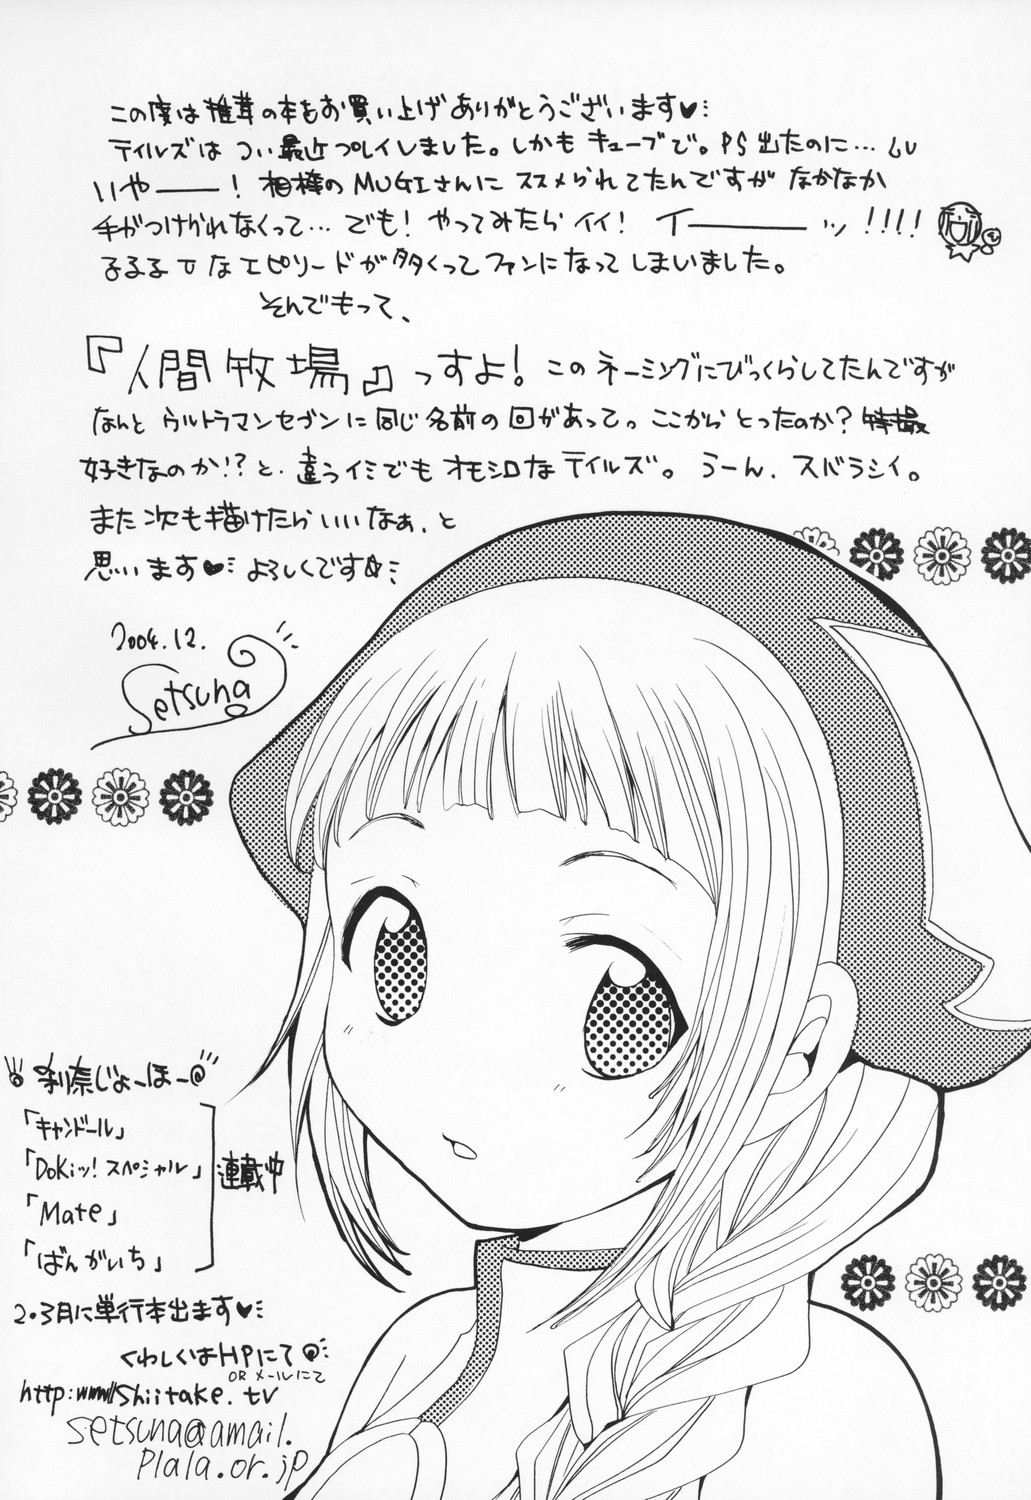 この度は椎茸の本をお買い上げありがとうございます♥
テイルズはつい最近プレイしました。しかもキューブで。PS出たのに…
いやー！相棒のMUGIさんにススメられてたんですがなかなか
手がつけられなくって…でも！やってみたらイイ！イーーッ!!!!
なエピソードが多くってファンになってしまいました。
そんでもって、
『人間牧場』っすよ！このネーミングにびっくらしてたんですが
なんとウルトラマンセブンに同じ名前の回があってっここからとったのか？特撮
好きなのか!?と、違うイミでもオモシロなテイルズ。うーん、スバラシイ。
また次も描けたらいいなぁ、と
思います♥よろしくです
2004.12.
Setsuna
刹奈じょーほー@
「キャンドール」
「DoKiッ！スペシャル」
「Mate」
「ばんがいち」
連載中
2.3月に単行本出ます♥
くわしくはHPにて
ORメールにて
http:www//Shiitake.tv
setsuna@amail.
plala.or.jp